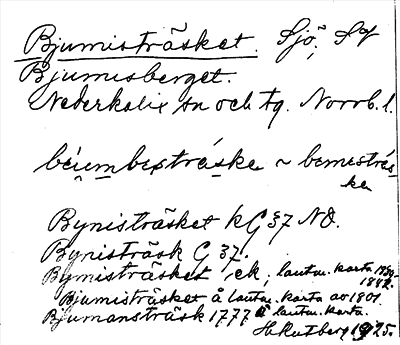 Bjumisträsket. Sjö,
Bjumisberget.
Nederkalix sn och tg. Norrb. l.
béiembesträske ~ bemesträs-
ke
Bynisträsket kG 37 NO.
Bynisträsk G 37.
Bymisträsket, ek, lantm. karta
1882.
Bjumisträsket å lantm. karta av 1801.
Bjumansträsk 1777 å lantm. karta.
H. Rutberg 1925.